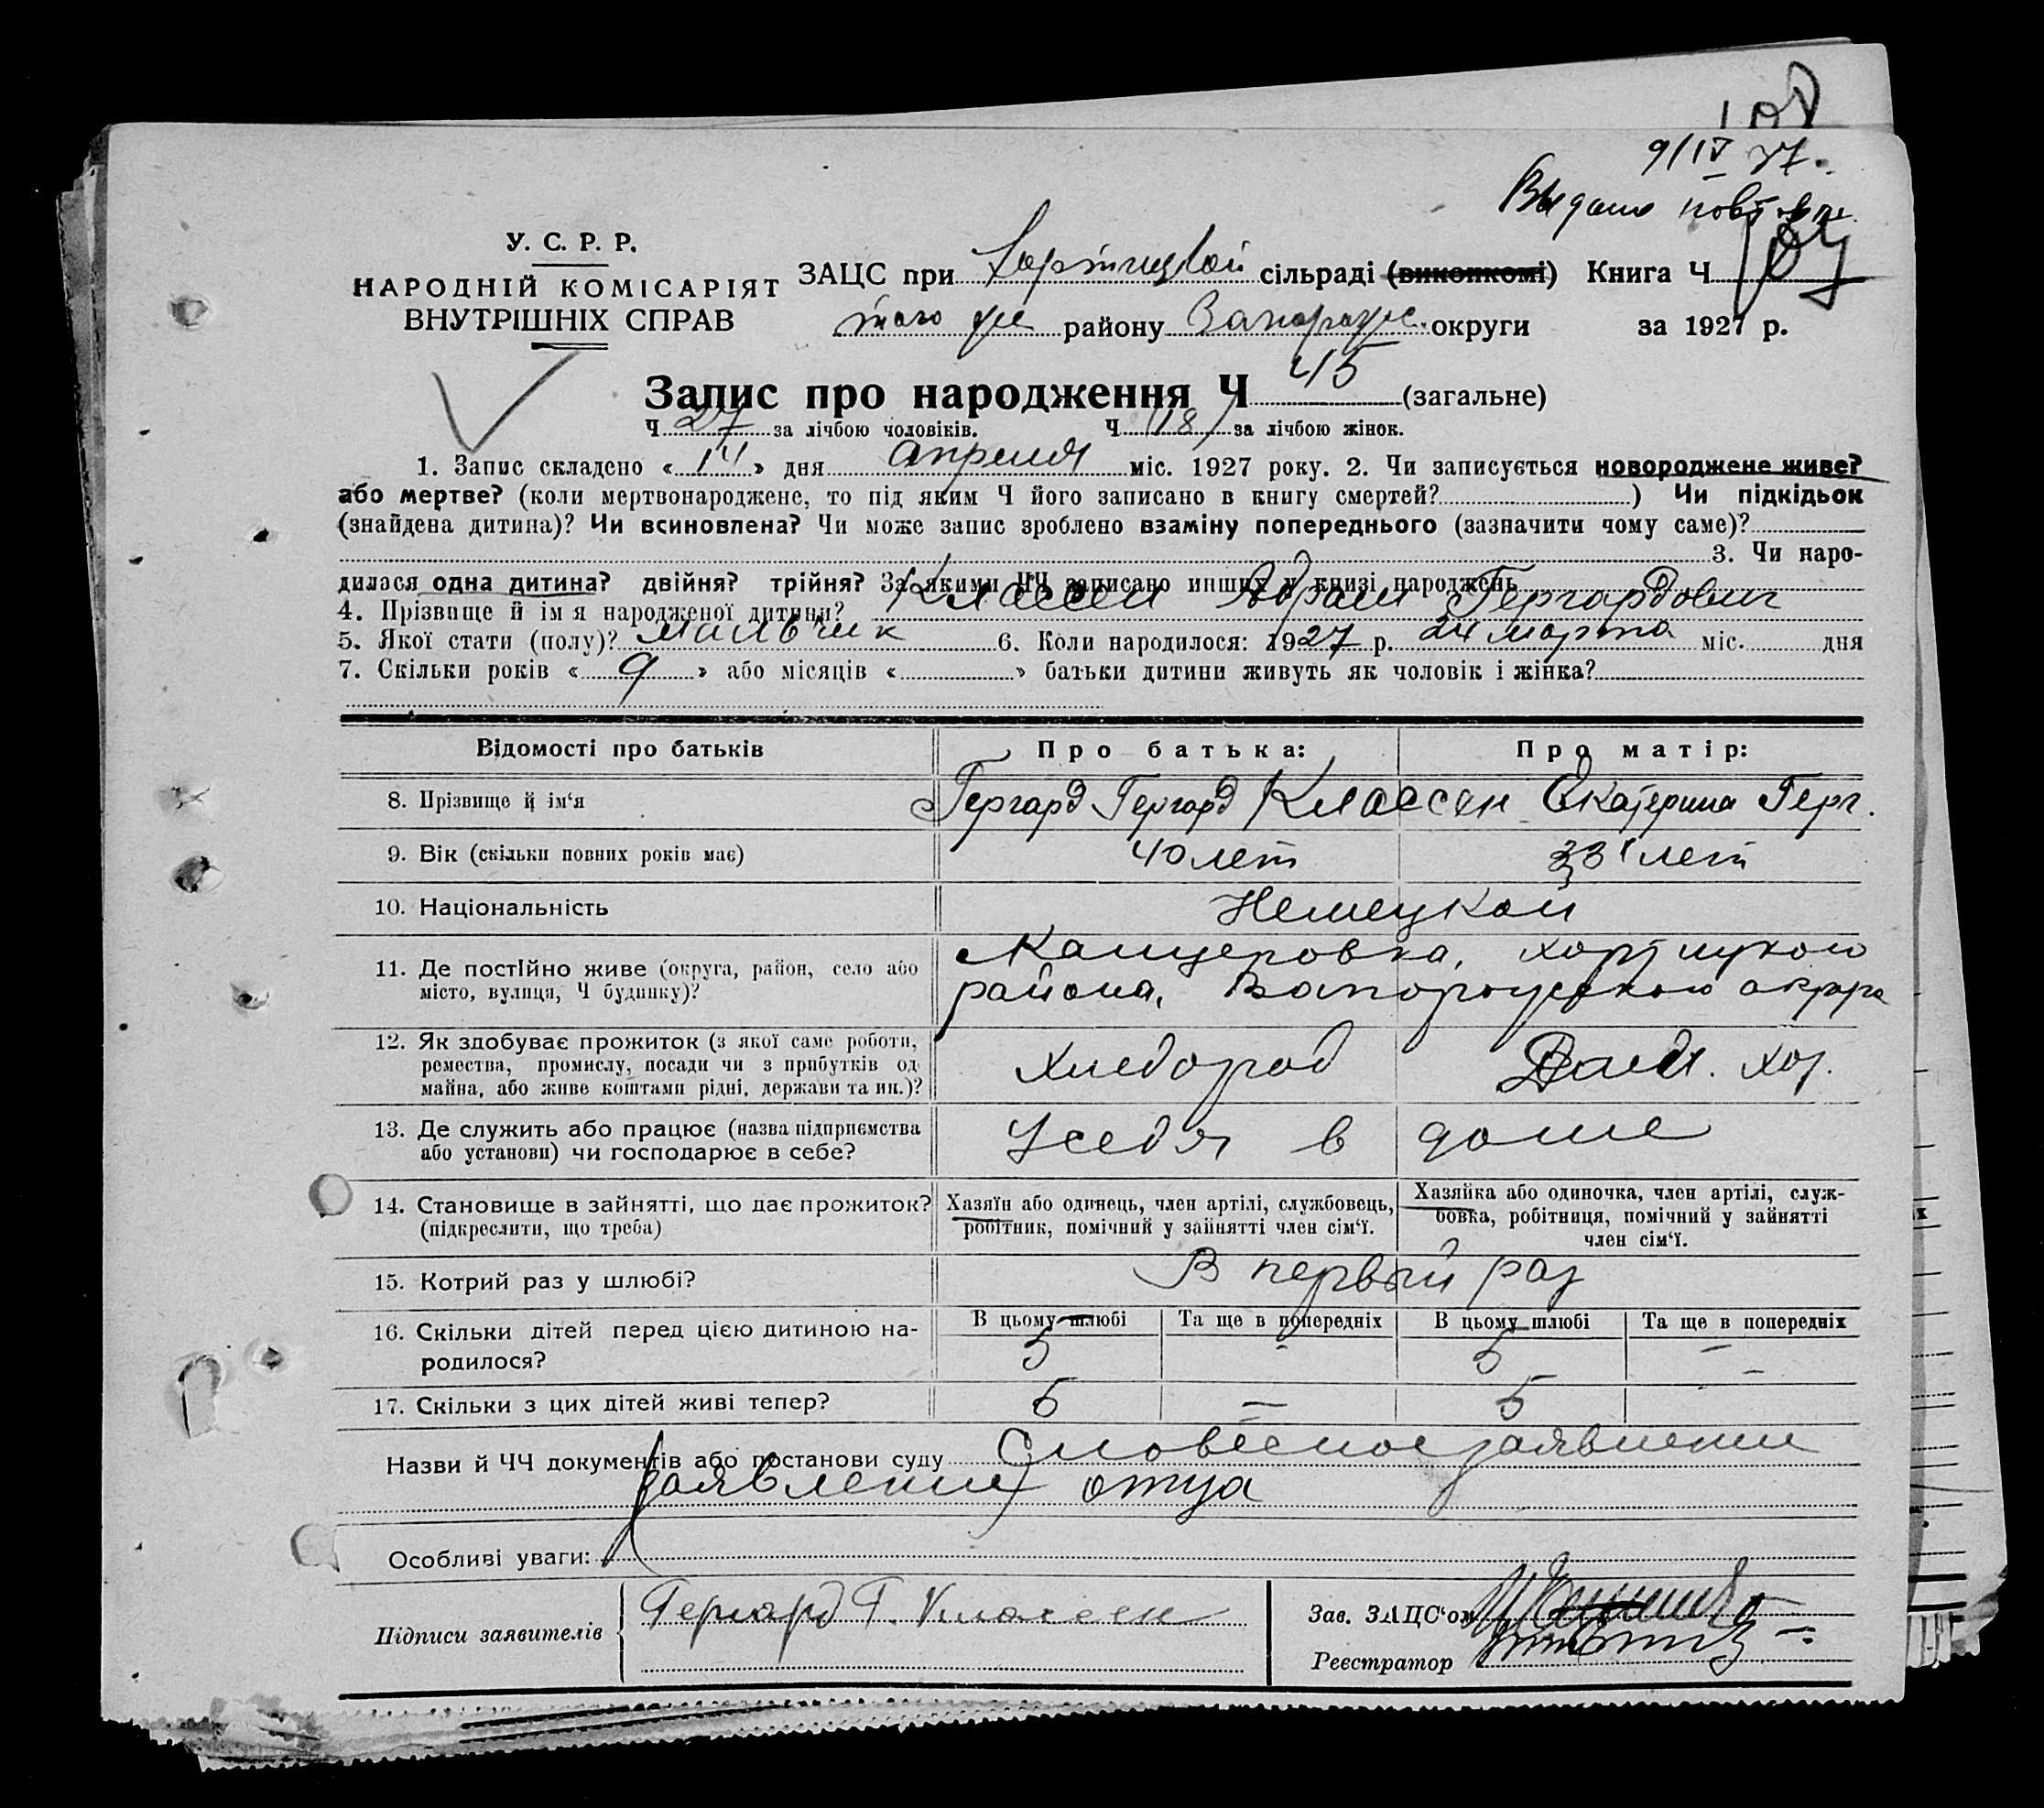 108
9/IV 37.
Выдано повторн.
У. С. Р. Р.
НАРОДНІЙ КОМІСАРІЯТ
ВНУТРІШНІХ СПРАВ
ЗАЦС при Хортицкой сільраді (виконкомі) Книга Ч
того же району Запорожс. округи за 1927 р.
Запис про народження Ч 45 (загальне)
Ч 27 за лічбою чоловіків. Ч (18) за лічбою жінок.
1. Запис складено « 14 » дня апреля міс. 1927 року. 2. Чи записується новороджене живе?
або мертве? (коли мертвонароджене, то під яким Ч його записано в книгу смертей? ) Чи підкідьок
(знайдена дитина)? Чи всиновлена? Чи може запис зроблено взаміну попереднього (зазначити чому саме)?
3. Чи наро-
дилася одна дитина? двійня? трійня? За якими ЧЧ записано инших у книзі народжень
4. Прізвище й ім'я народженої дитини? Классен Абрам Гергардович
5. Якої стати (полу)? мальчик 6. Коли народилося: 1927 р. 24 марта міс. дня
7. Скільки років « 9 » або місяців « » батьки дитини живуть як чоловік і жінка?
Відомості про батьків Про батька: Про матір:
8. Прізвище й ім'я Гергард Гергард Классен Екатерина Герг.
9. Вік (скільки повних років має) 40 лет 33 лет
10. Національність Немецкой
11. Де постійно живе (округа, район, село або місто, вулиця, Ч будинку)? Канцеровка, Хортицкого
района, Запорожского округа
12. Як здобуває прожиток (з якої саме роботи,
ремества, промислу, посади чи з прибутків од
майна, або живе коштами рідні, держави та ин.)? Хлебороб Дом. хоз.
13. Де служить або працює (назва підприємства
або установи) чи господарює в себе? У себя в доме
14. Становище в зайнятті, що дає прожиток?
(підкреслити, що треба)
Хазяїн або одинець, член артілі, службовець,
робітник, помічний у зайнятті член сім'ї.
Хазяйка або одиночка, член артілі, служ-
бовка, робітниця, помічний у зайнятті
член сім'ї.
15. Котрий раз у шлюбі? В первый раз
В цьому шлюбі Та ще в попередніх В цьому шлюбі Та ще в попередніх
16. Скільки дітей перед цією дитиною на-
родилося? 5 - 5 -
17. Скільки з цих дітей живі тепер? 5 - 5
Назви й ЧЧ документів або постанови суду Словесное заявление
заявление) отца
Особливі уваги:
Підписи заявителів Гергард Г. Классен
Зав. ЗАЦС'ом
Реєстратор